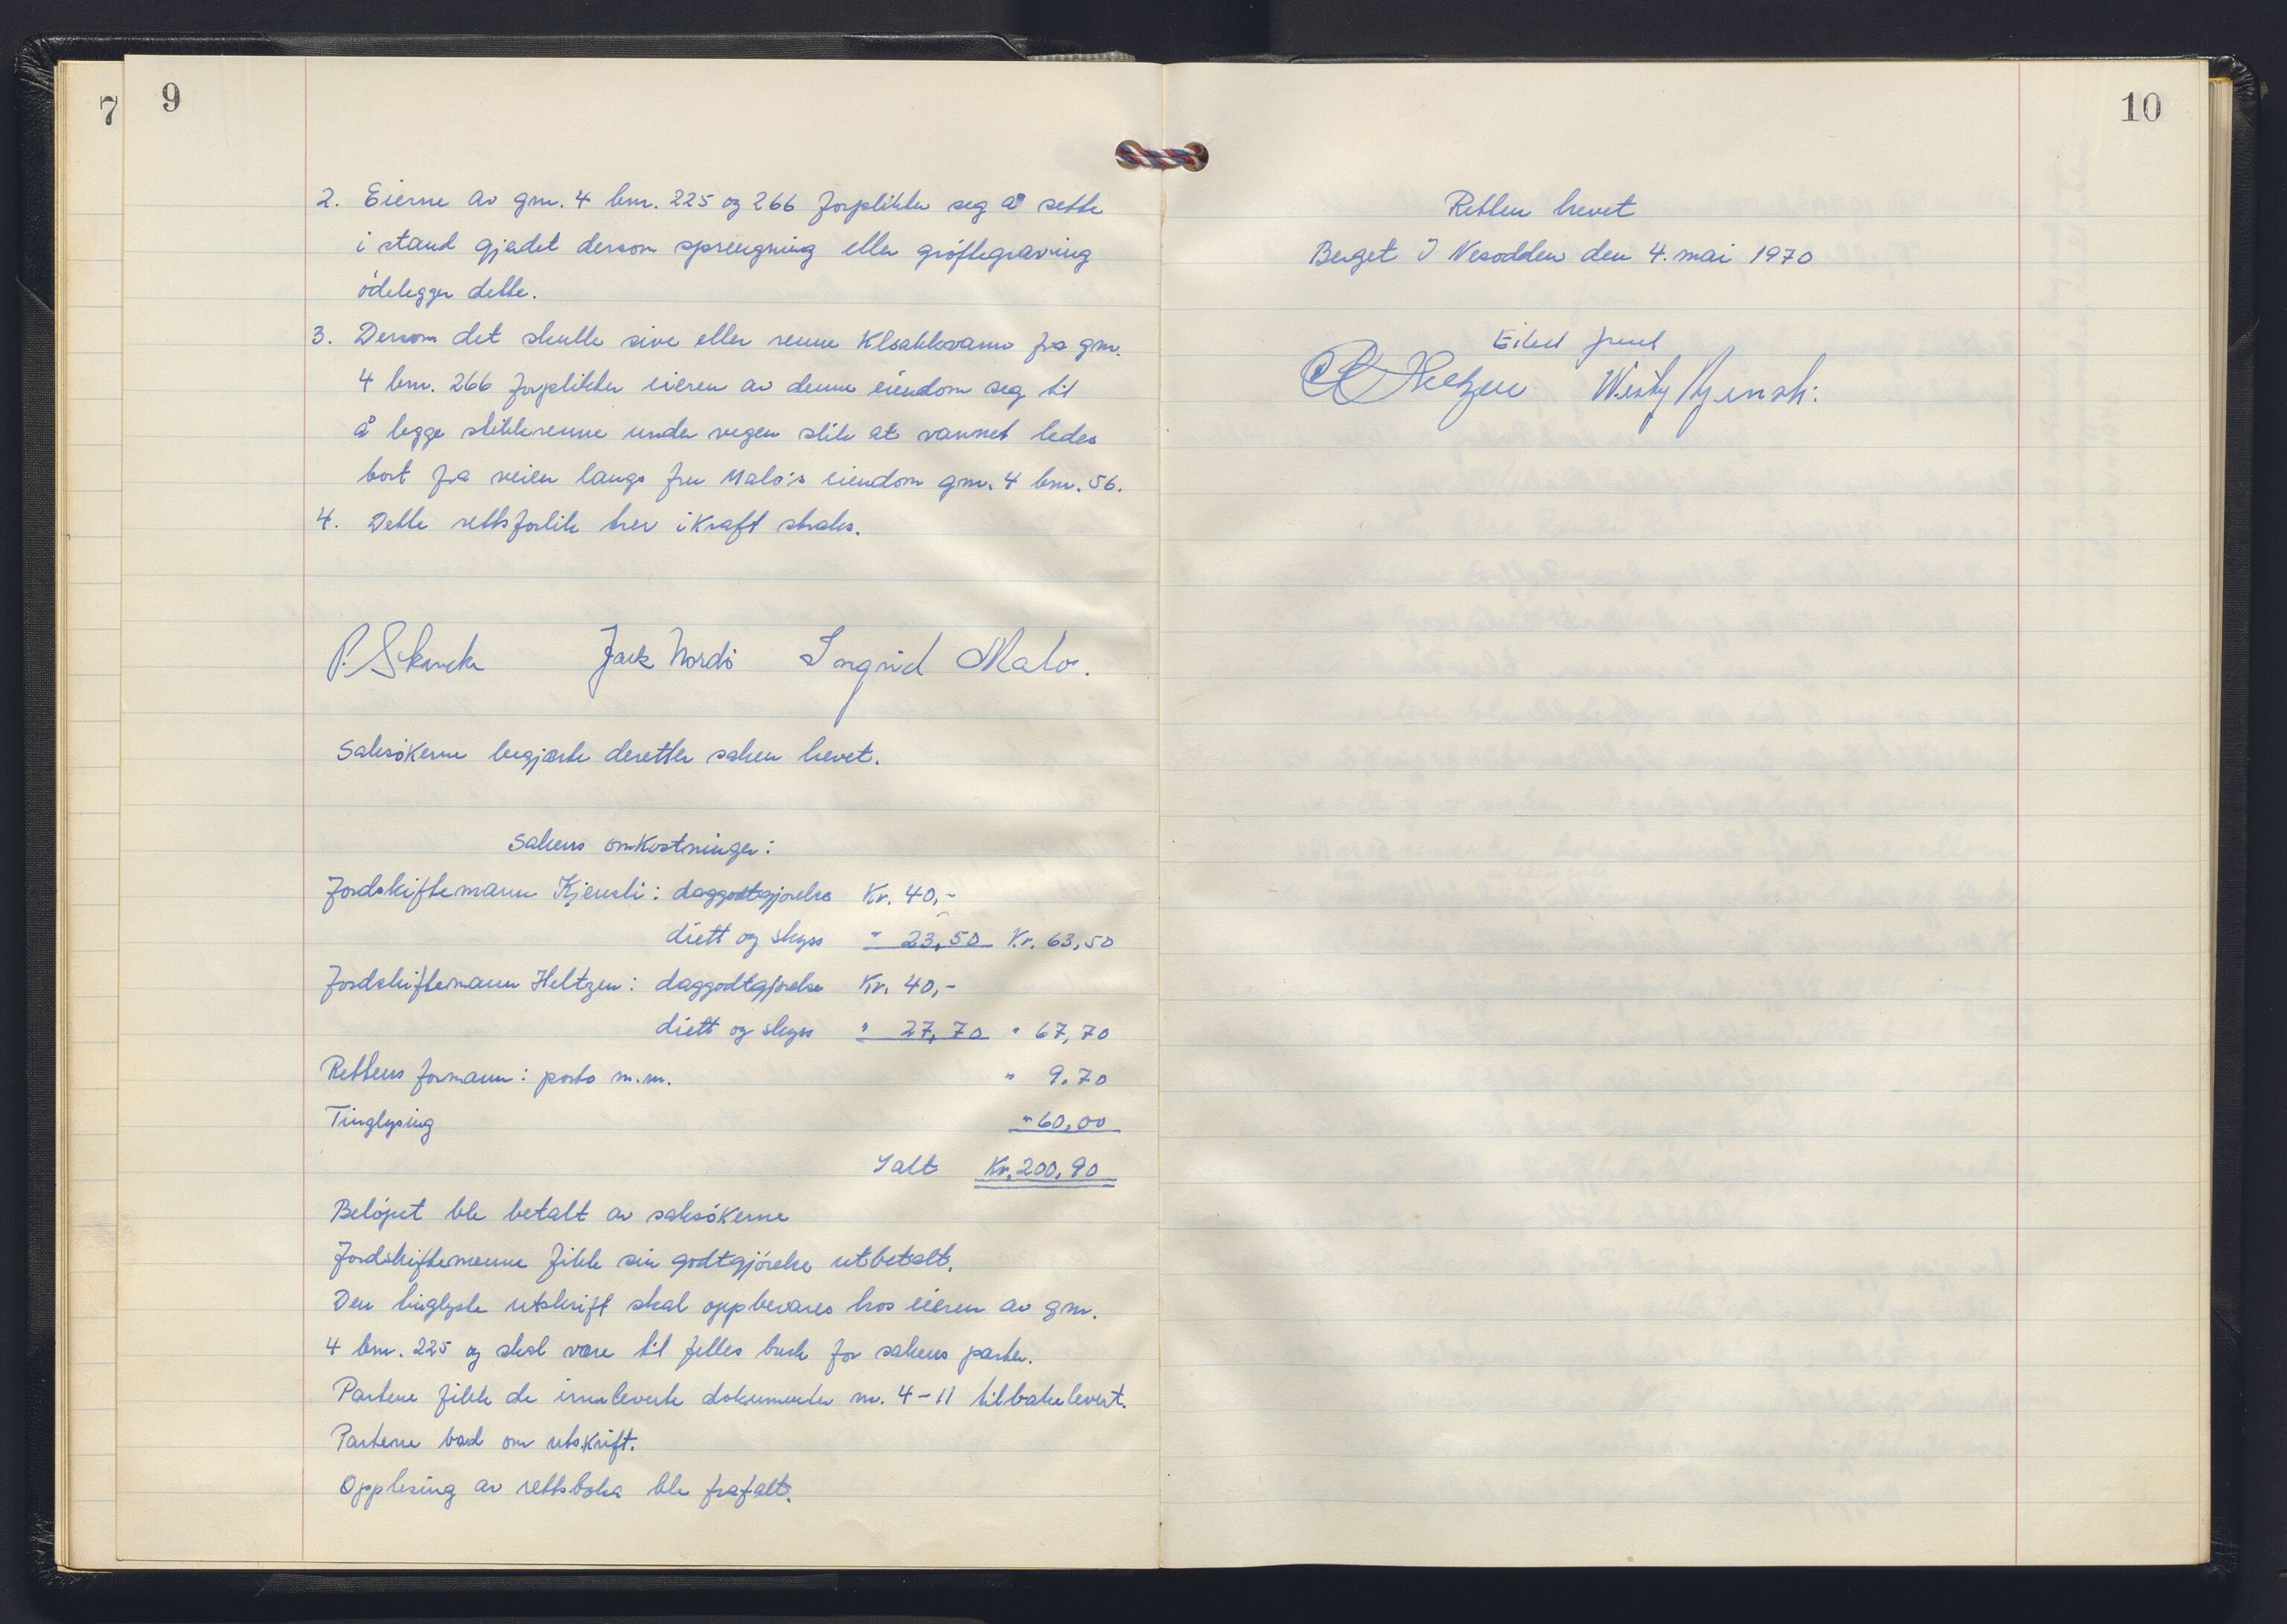 7
9
2. Eierne av gnr. 4 bnr. 225 og 266 forplikter seg å sette
i stand gjerdet dersom sprengning eller grøftegraving
ødelegger dette.
3. Dersom det skulle sive eller renne kloakkvann fra gnr.
4 bnr. 266 forplikter eieren av denne eiendom seg til
å legge stikkrenne under vegen slik at vannet ledes
bort fra veien langs fru Malo's eiendom gnr. 4 bnr. 56.
4. Dette rettsforlik trer i kraft straks.
P. Skancke Jack Nordö Ingrid Malo.
Saksøkerne begjærte deretter saken hevet.
Sakens omkostninger:
Jordskiftemann Kjensli: daggodtgjørelse Kr. 40,-
diett og skyss " 23,50 Kr. 63,50
Jordskiftemann Heltzen: daggodtgjørelse Kr. 40,-
diett og skyss " 27,70 " 67,70
Rettens formann: porto m.m. " 9.70
Tinglysing " 60,00
Ialt Kr. 200,90
Beløpet ble betalt av saksøkerne
Jordskiftemennene fikk sin godtgjørelse utbetalt.
Den tinglyste utskrift skal oppbevares hos eieren av gnr.
4 bnr. 225 og skal være til felles bruk for sakens parter.
Partene fikk de innleverte dokumenter nr. 4-11 tilbakelevert.
Partene bad om utskrift.
Opplesing av rettsboka ble frafalt.
10
Retten hevet
Berget I Nesodden den 4. mai 1970
Heltzen Kjensli.